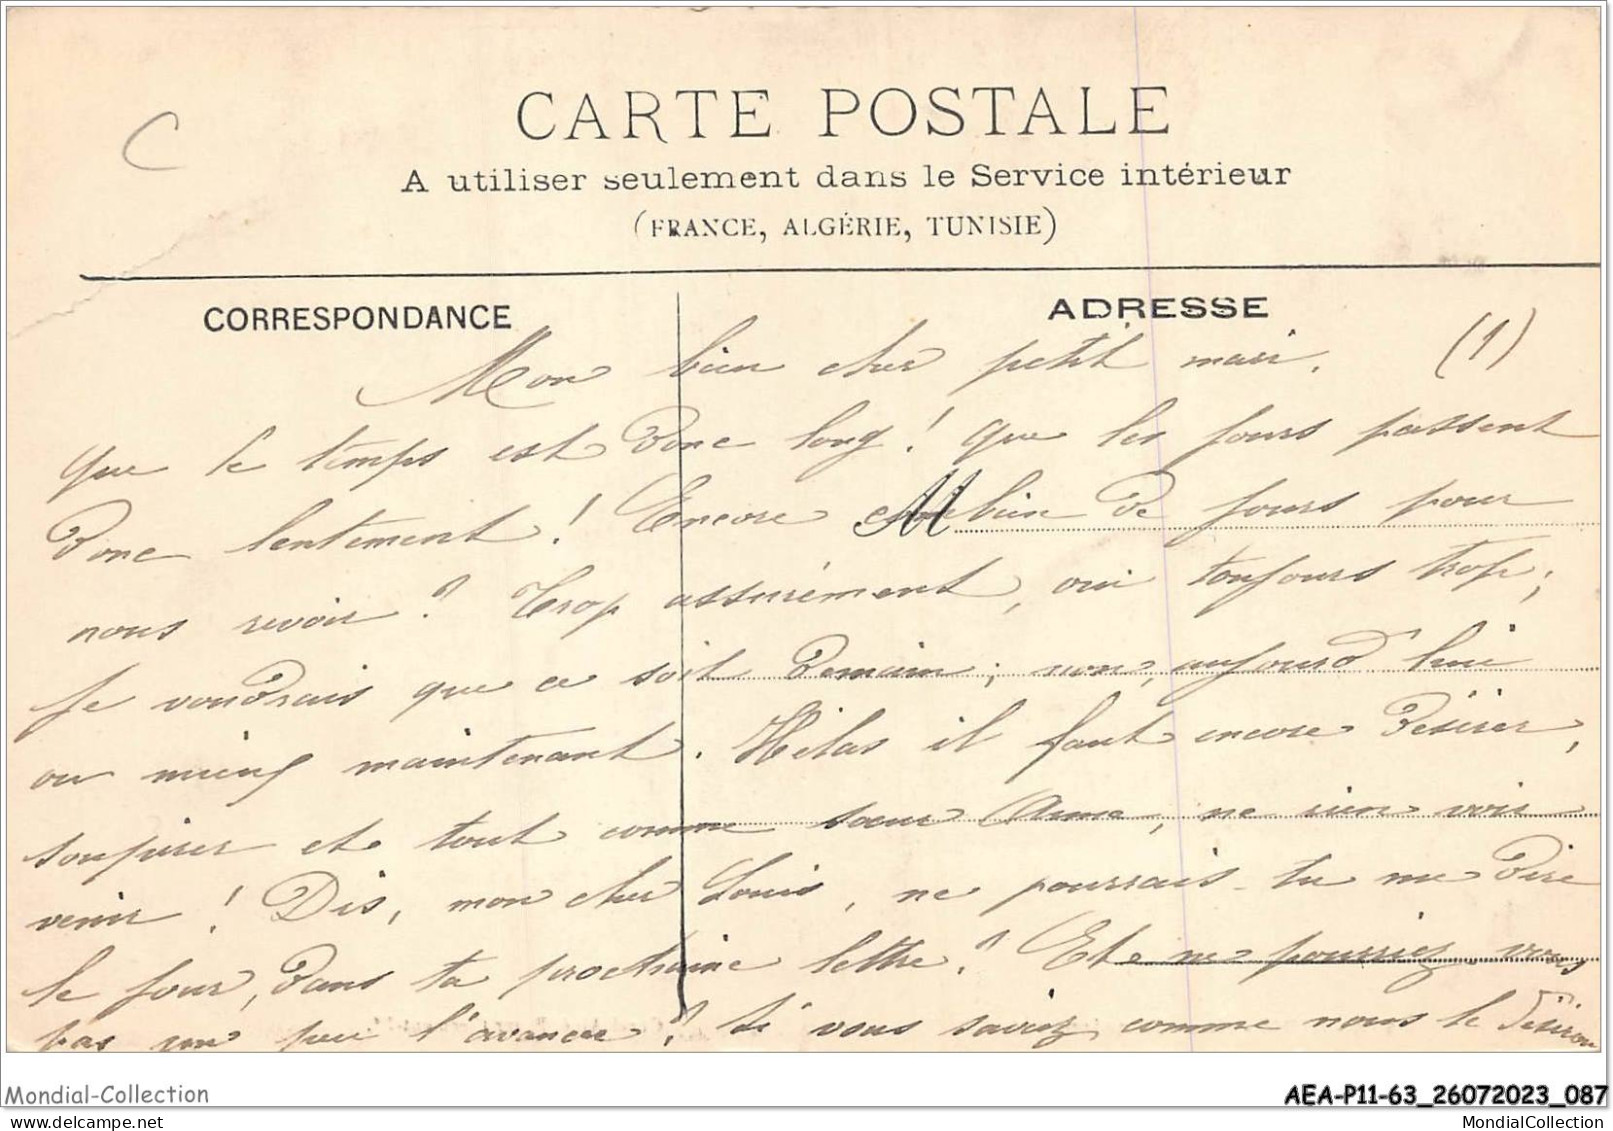 C
CARTE POSTALE
A utiliser seulement dans le Service intérieur
(FRANCE, ALGÉRIE, TUNISIE)
CORRESPONDANCE
ADRESSE
Mon bien cher petit mari. (1)
que le temps est donc long! que les jours passent
donc lentement! Encore M bien de jours pour
nous revoir? Trop assurément, oui toujours trop;
je voudrais que ce soit demain; non, aujourd'hui
ou mieux maintenant. Hélas il faut encore désirer,
soupirer et tout comme sœur Anne, ne rien voir
venir! Dis, mon cher Louis, ne pourrais-tu me dire
le jour, dans ta prochaine lettre? Et ne pourriez-vous
pas un peu l'avancer? Si vous saviez comme nous le désirons
Mondial-Collection
AEA-P11-63_26072023_087
mondial-collection
MondialCollection